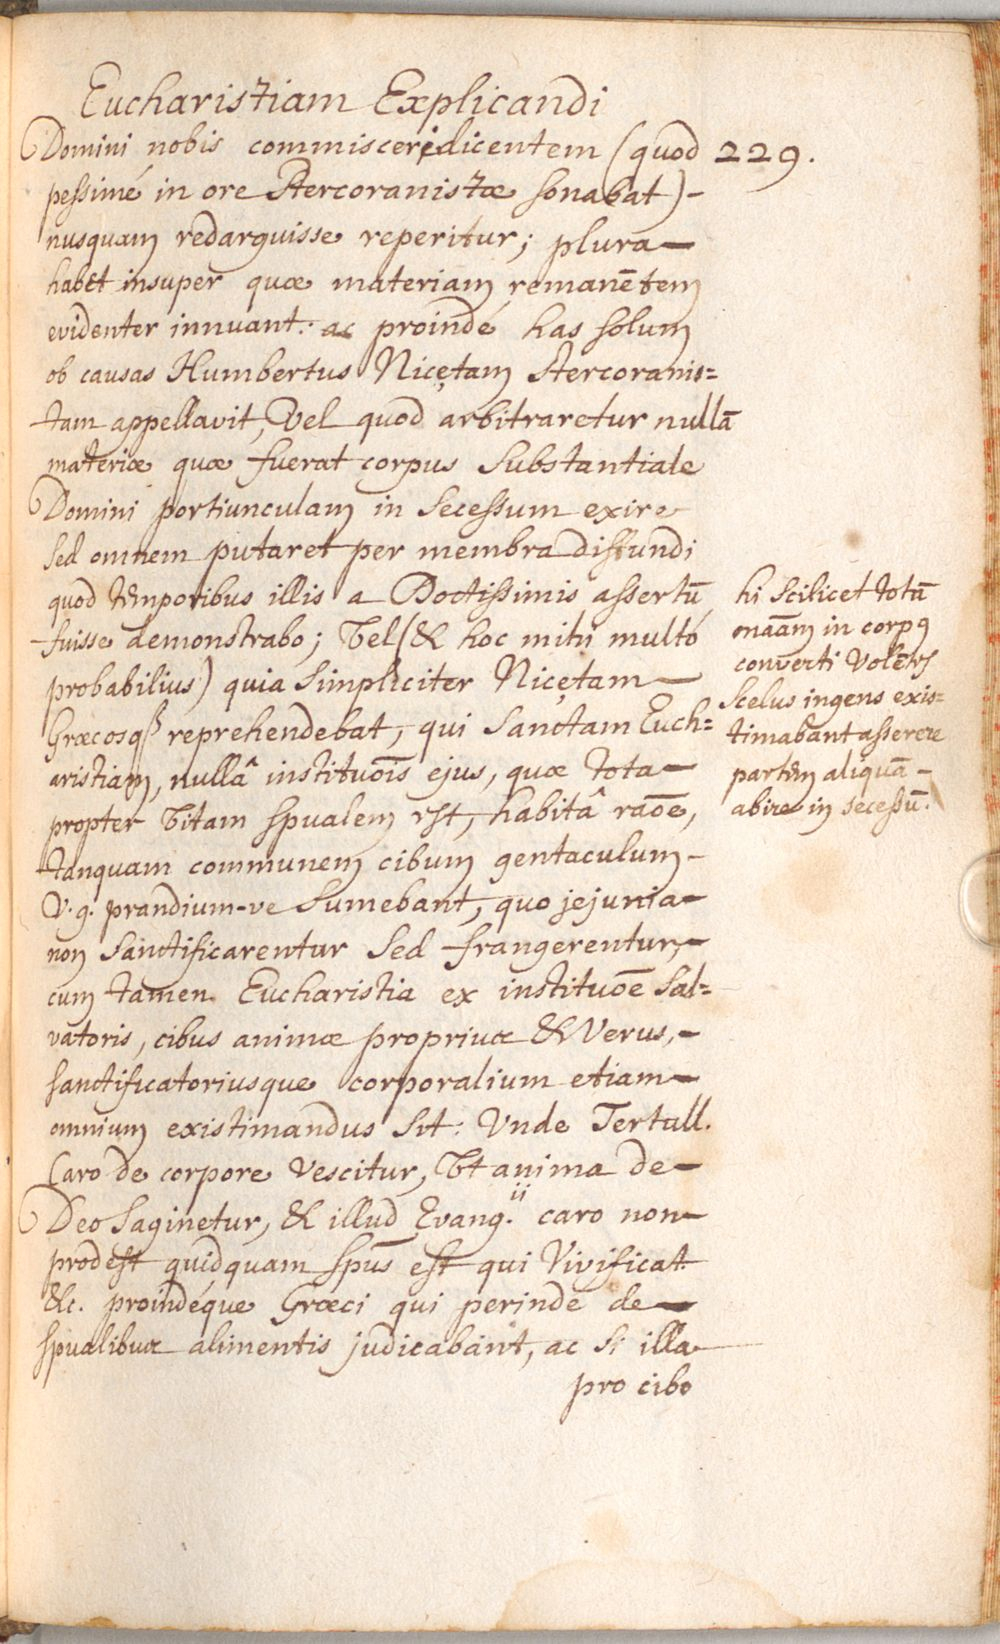 Eucharistiam Explicandi
229.
Domini nobis commisceri dicentem (quod
pessimé in ore Stercoranistæ sonabat)-
nusquam redarguisse reperitur; plura-
habet insuper quæ materiam remanētem
evidenter innuant: ac proindé has solum
ob causas Humbertus Nicetam stercoranis=
tam appellavit, Vel quod arbitraretur nullā
materiæ quæ fuerat corpus substantiale
Domini portiunculam in Secessum exire
sed omnem putaret per membra diffundi
quod temporibus illis a Doctissimis assertū
fuisse demonstrabo; Vel (& hoc mihi multó
probabilius) quia simpliciter Nicetam-
Græcosq̃ reprehendebat, qui Sanctam Euch=
aristiam, nullâ instituōis ejus, quæ tota-
propter Vitam spualem est, habitâ raōe,
tanquam communem cibum gentaculum-
V.g. prandium-ve Sumebant, quo jejunia-
non Sanctificarentur Sed frangerentur,-
cum tamen Eucharistia ex instituōe Sal=
vatoris, cibus animæ proprius & Verus,-
sanctificatoriusque corporalium etiam-
omnium existimandus Sit: Unde Tertull.
Caro de corpore Vescitur, Vt anima de-
Deo Saginetur, & illud Evang.ii caro non-
prodest quidquam Spūs est qui Vivificat
&c. proindéque Græci qui perinde de-
spualibus alimentis judicabant, ac si illa
pro cibo
hi Scilicet totā
maām in corp9
converti Volētes
Scelus ingens exis=
timabant asserere
partem aliquā-
abire in secessū.